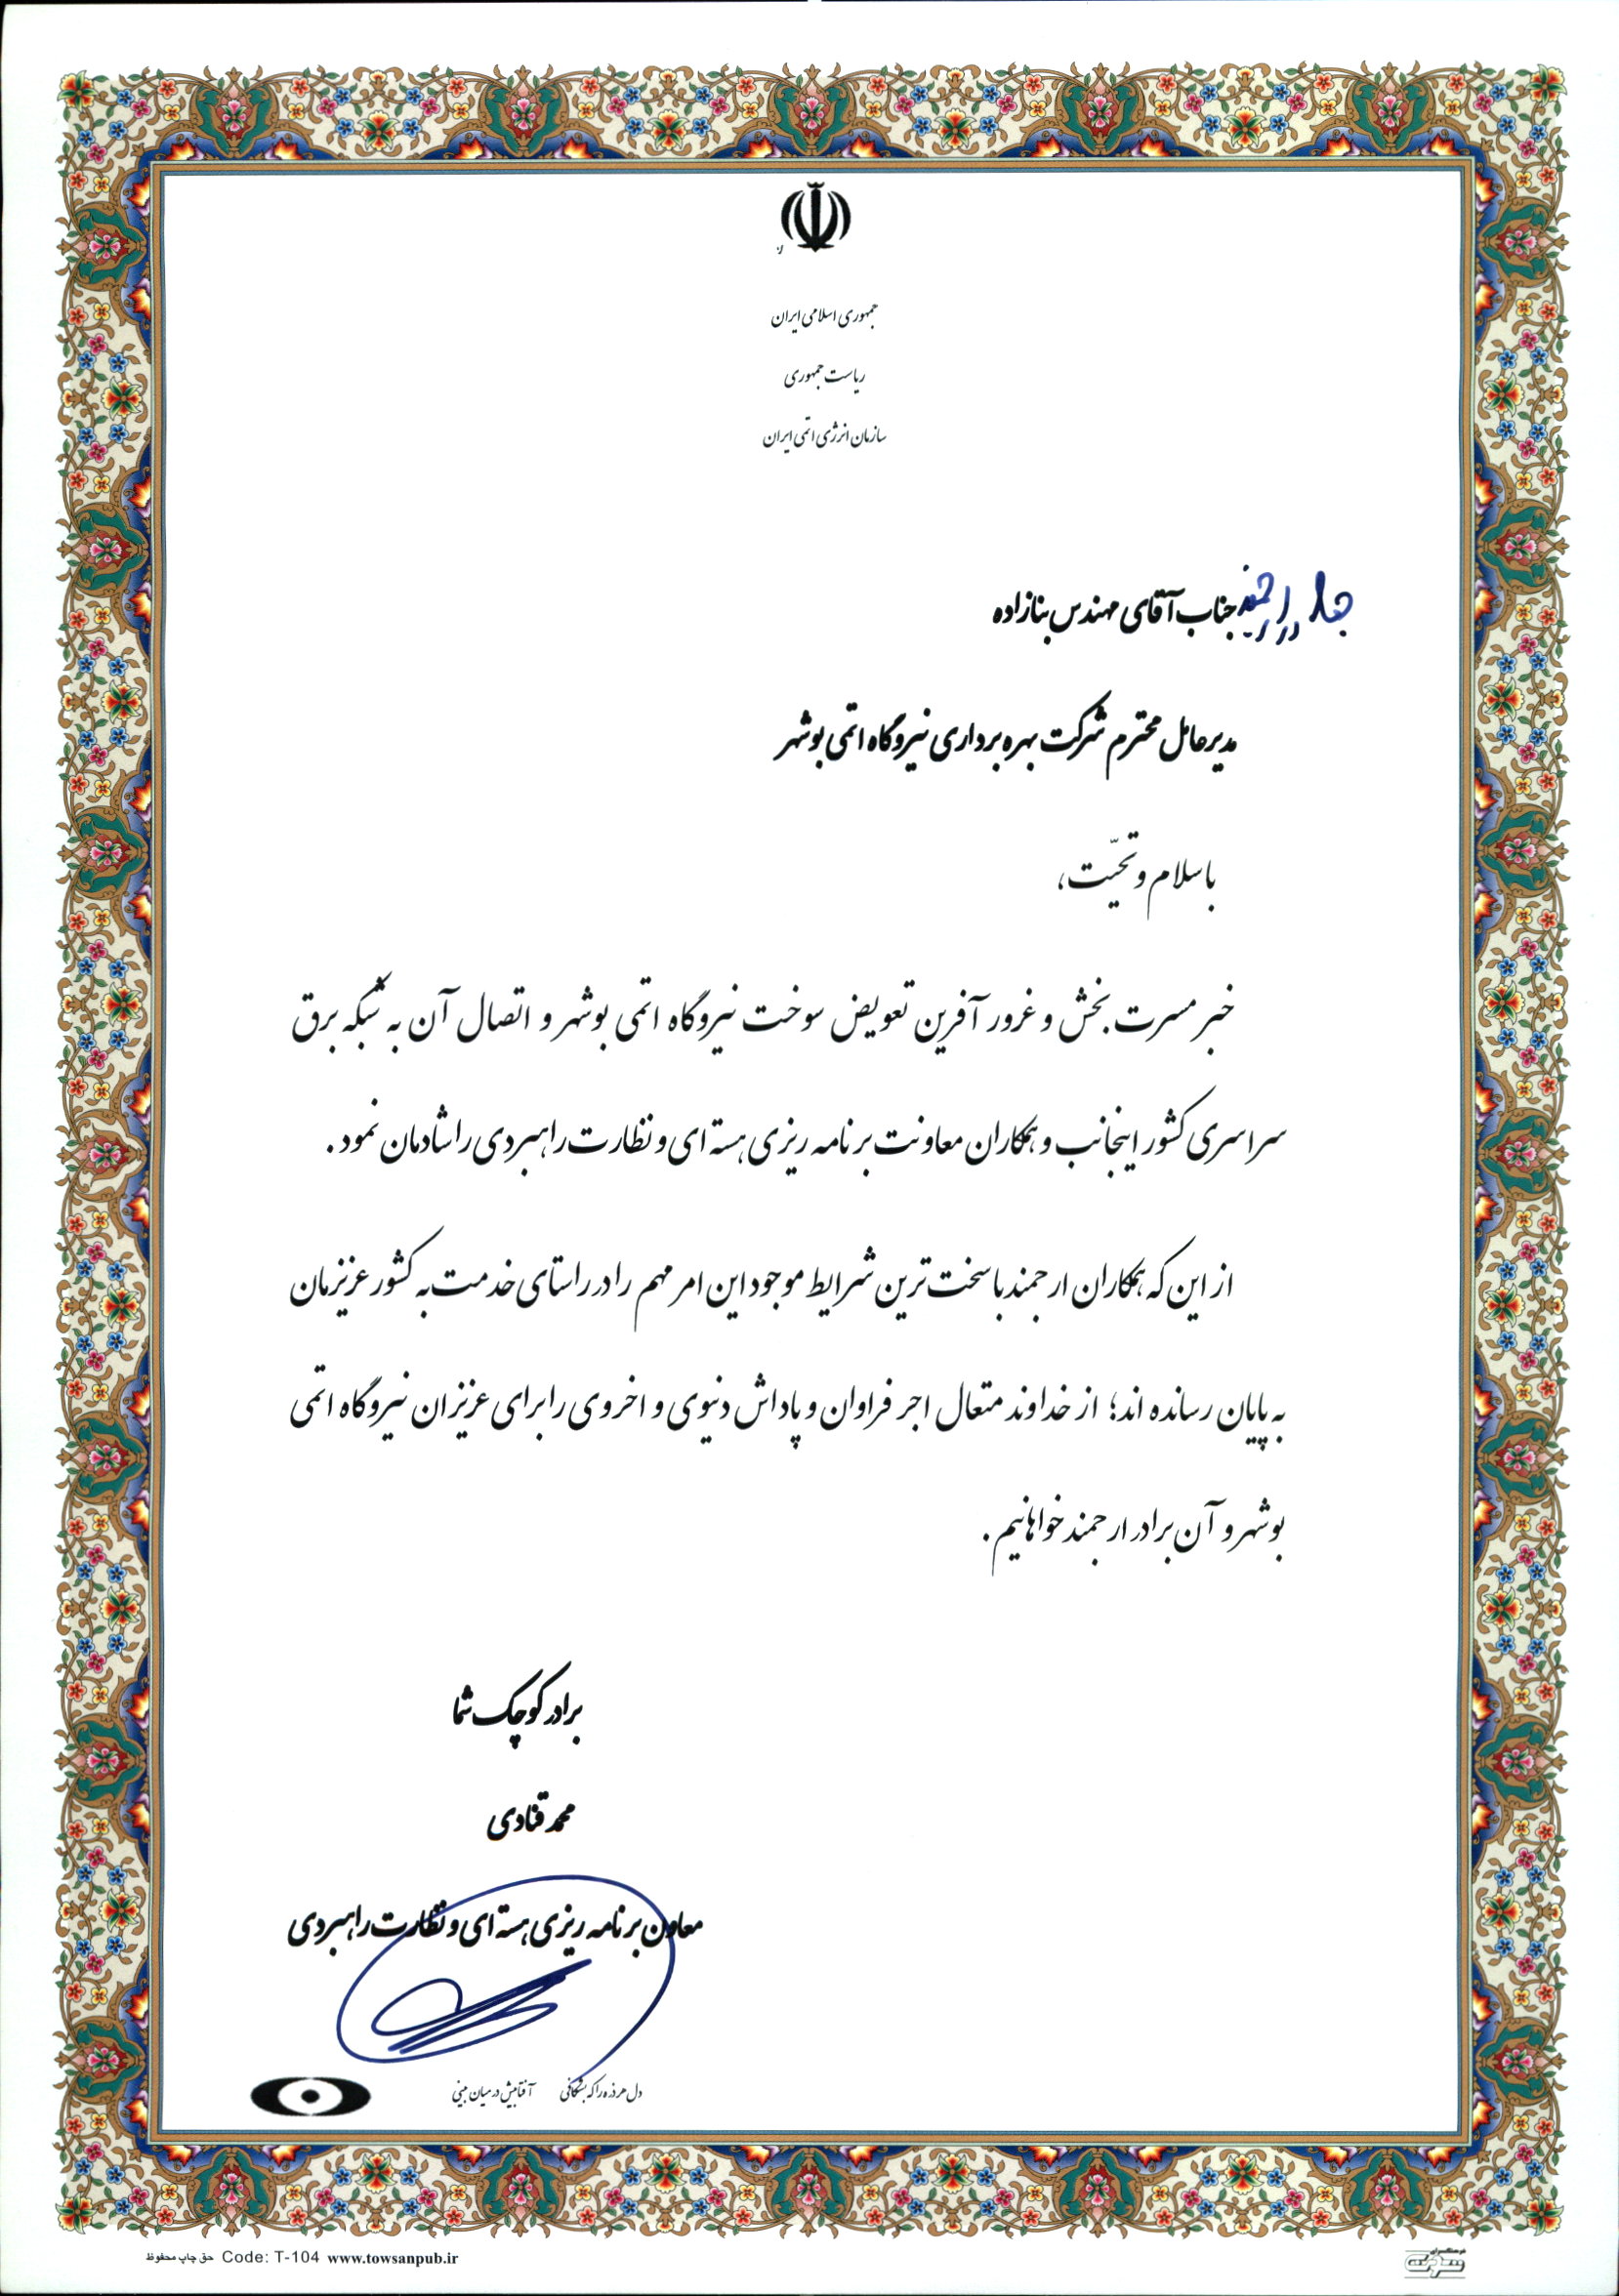 جمهوری اسلامی ایران
ریاست جمهوری
سازمان انرژی اتمی ایران
برادر ارجمند جناب آقای مهندس بنازاده
مدیرعامل محترم شرکت بهره برداری نیروگاه اتمی بوشهر
با سلام و تحیّت،
خبر مسرت بخش و غرور آفرین تعویض سوخت نیروگاه اتمی بوشهر و اتصال آن به شبکه برق
سراسری کشور اینجانب و همکاران معاونت برنامه ریزی هسته ای و نظارت راهبردی را شادمان نمود.
از این که همکاران ارجمند با سخت ترین شرایط موجود این امر مهم را در راستای خدمت به کشور عزیزمان
به پایان رسانده اند؛ از خداوند متعال اجر فراوان و پاداش دنیوی و اخروی را برای عزیزان نیروگاه اتمی
بوشهر و آن برادر ارجمند خواهانیم.
برادر کوچک شما
محمد قنادی
معاون برنامه ریزی هسته ای و نظارت راهبردی
دل هر ذره را که بشکافی آفتابیش در میان بینی
حق چاپ محفوظ Code: T-104 www.towsanpub.ir